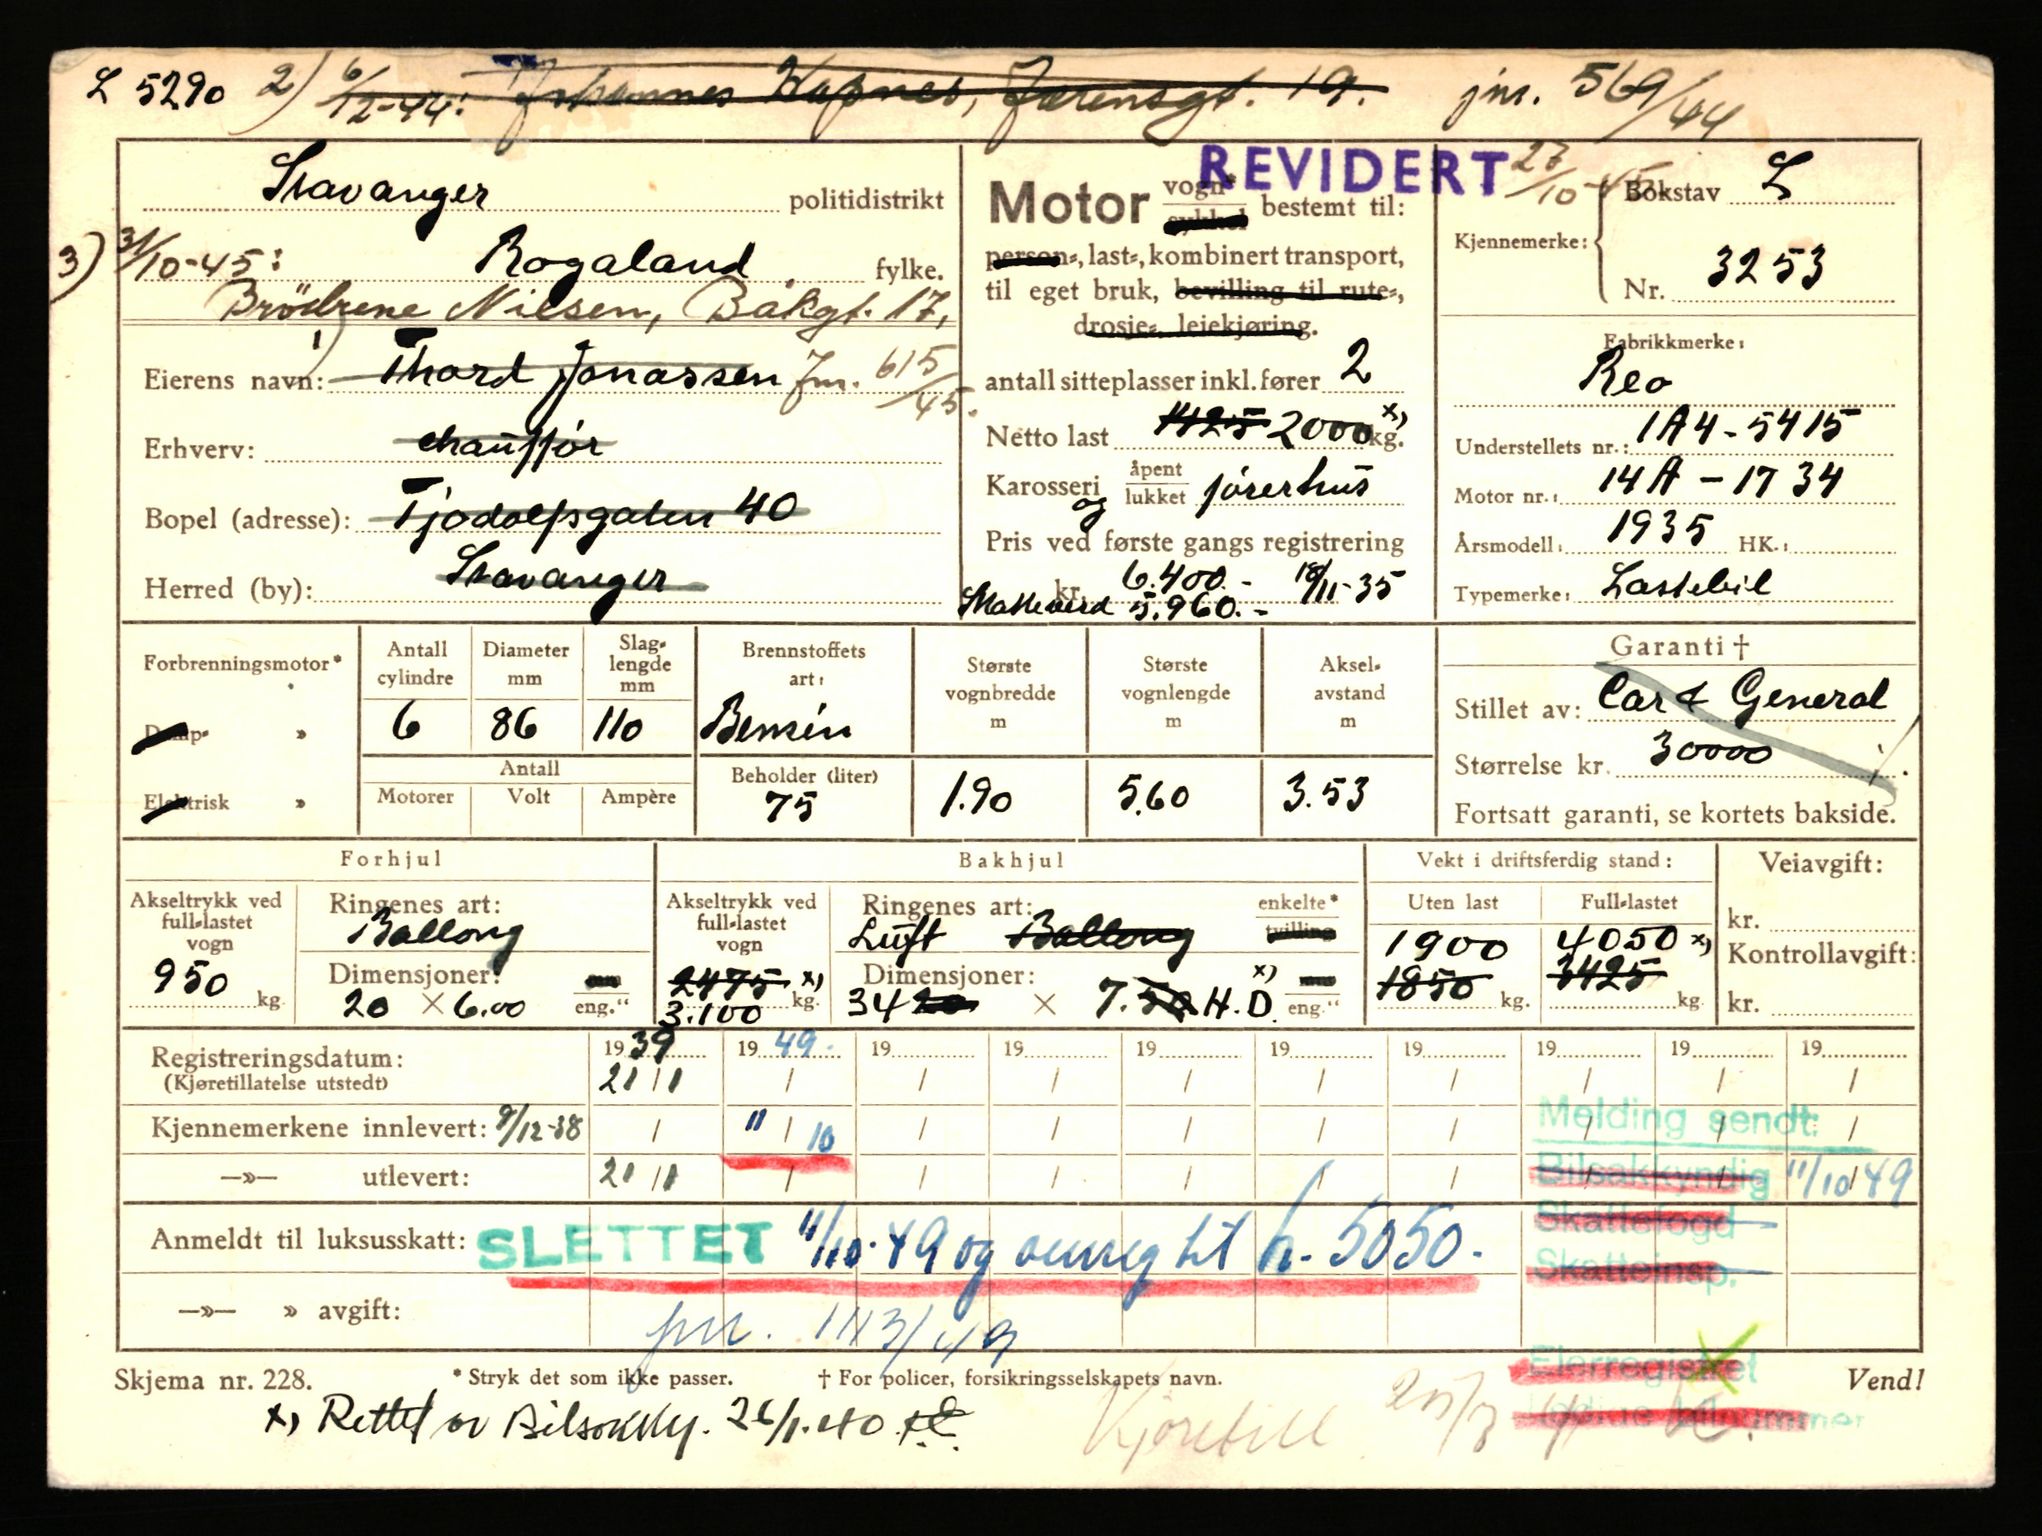 L 5290 2) 6/12-44: Johannes Hapnes, Jærensgt. 19. jnr. 569/44
Stavanger politidistrikt
3) 31/10-45: Rogaland fylke.
Brödrene Nilsen, Bakgt. 17,
1)
Eierens navn: Thord Jonassen Jnr. 615/45.
Erhverv: chauffør
Bopel (adresse): Tjodolfsgaten 40
Herred (by): Stavanger
REVIDERT 27/10-45
Motor vogn* sykkel bestemt til:
person-, last-, kombinert transport,
til eget bruk, bevilling til rute-,
drosje-, leiekjøring.
antall sitteplasser inkl. fører 2
Netto last 1425 2000 x) kg.
Karosseri åpent og lukket førerhus
Pris ved første gangs registrering
kr. 6.400.- 18/11-35
Skatteverd 5.960.-
Kjennemerke: Bokstav L
Nr. 3253
Fabrikkmerke:
Reo
Understellets nr.: 1A4-5415
Motor nr.: 14A-1734
Årsmodell: 1935 HK.:
Typemerke: Lastebil
Forbrenningsmotor*
Damp- »
Elektrisk »
Antall cylindre 6
Diameter mm 86
Slag-lengde mm 110
Antall
Motorer Volt Ampère
Brennstoffets art: Bensin
Beholder (liter) 75
Største vognbredde m 1.90
Største vognlengde m 5.60
Aksel-avstand m 3.53
Garanti †
Stillet av: Car & General
Størrelse kr. 30000
Fortsatt garanti, se kortets bakside.
Forhjul
Akseltrykk ved full-lastet vogn 950 kg.
Ringenes art: Ballong
Dimensjoner: mm
20 × 6.00 eng."
Bakhjul
Akseltrykk ved full-lastet vogn 2475 x) 3.100 kg.
Ringenes art: enkelte* tvilling
Luft Ballong
Dimensjoner: x) mm
34 20 × 7.50 H.D. eng."
Vekt i driftsferdig stand:
Uten last 1900 1850 kg.
Full-lastet 4050 x) 3425 kg.
Veiavgift:
kr.
Kontrollavgift:
kr.
Registreringsdatum: 1939 1949. 19 19 19 19 19 19 19 19
(Kjøretillatelse utstedt) 21/1 / / / / / / / / /
Kjennemerkene innlevert: 9/12-38 / 11/10 / / / / / / / /
—»— utlevert: 21/1 / / / / / / / / /
Melding sendt:
Bilsakkyndig 11/10 49
Skattefogd
Skatteinsp.
Anmeldt til luksusskatt: SLETTET 11/10-49 og omreg til h-5050.
—»— » avgift: jnr. 1113/49
Eierregistret
Skjema nr. 228. * Stryk det som ikke passer. † For policer, forsikringsselskapets navn. Vend!
x) Rettet av Bilsakky. 26/1.40
Kjøretill